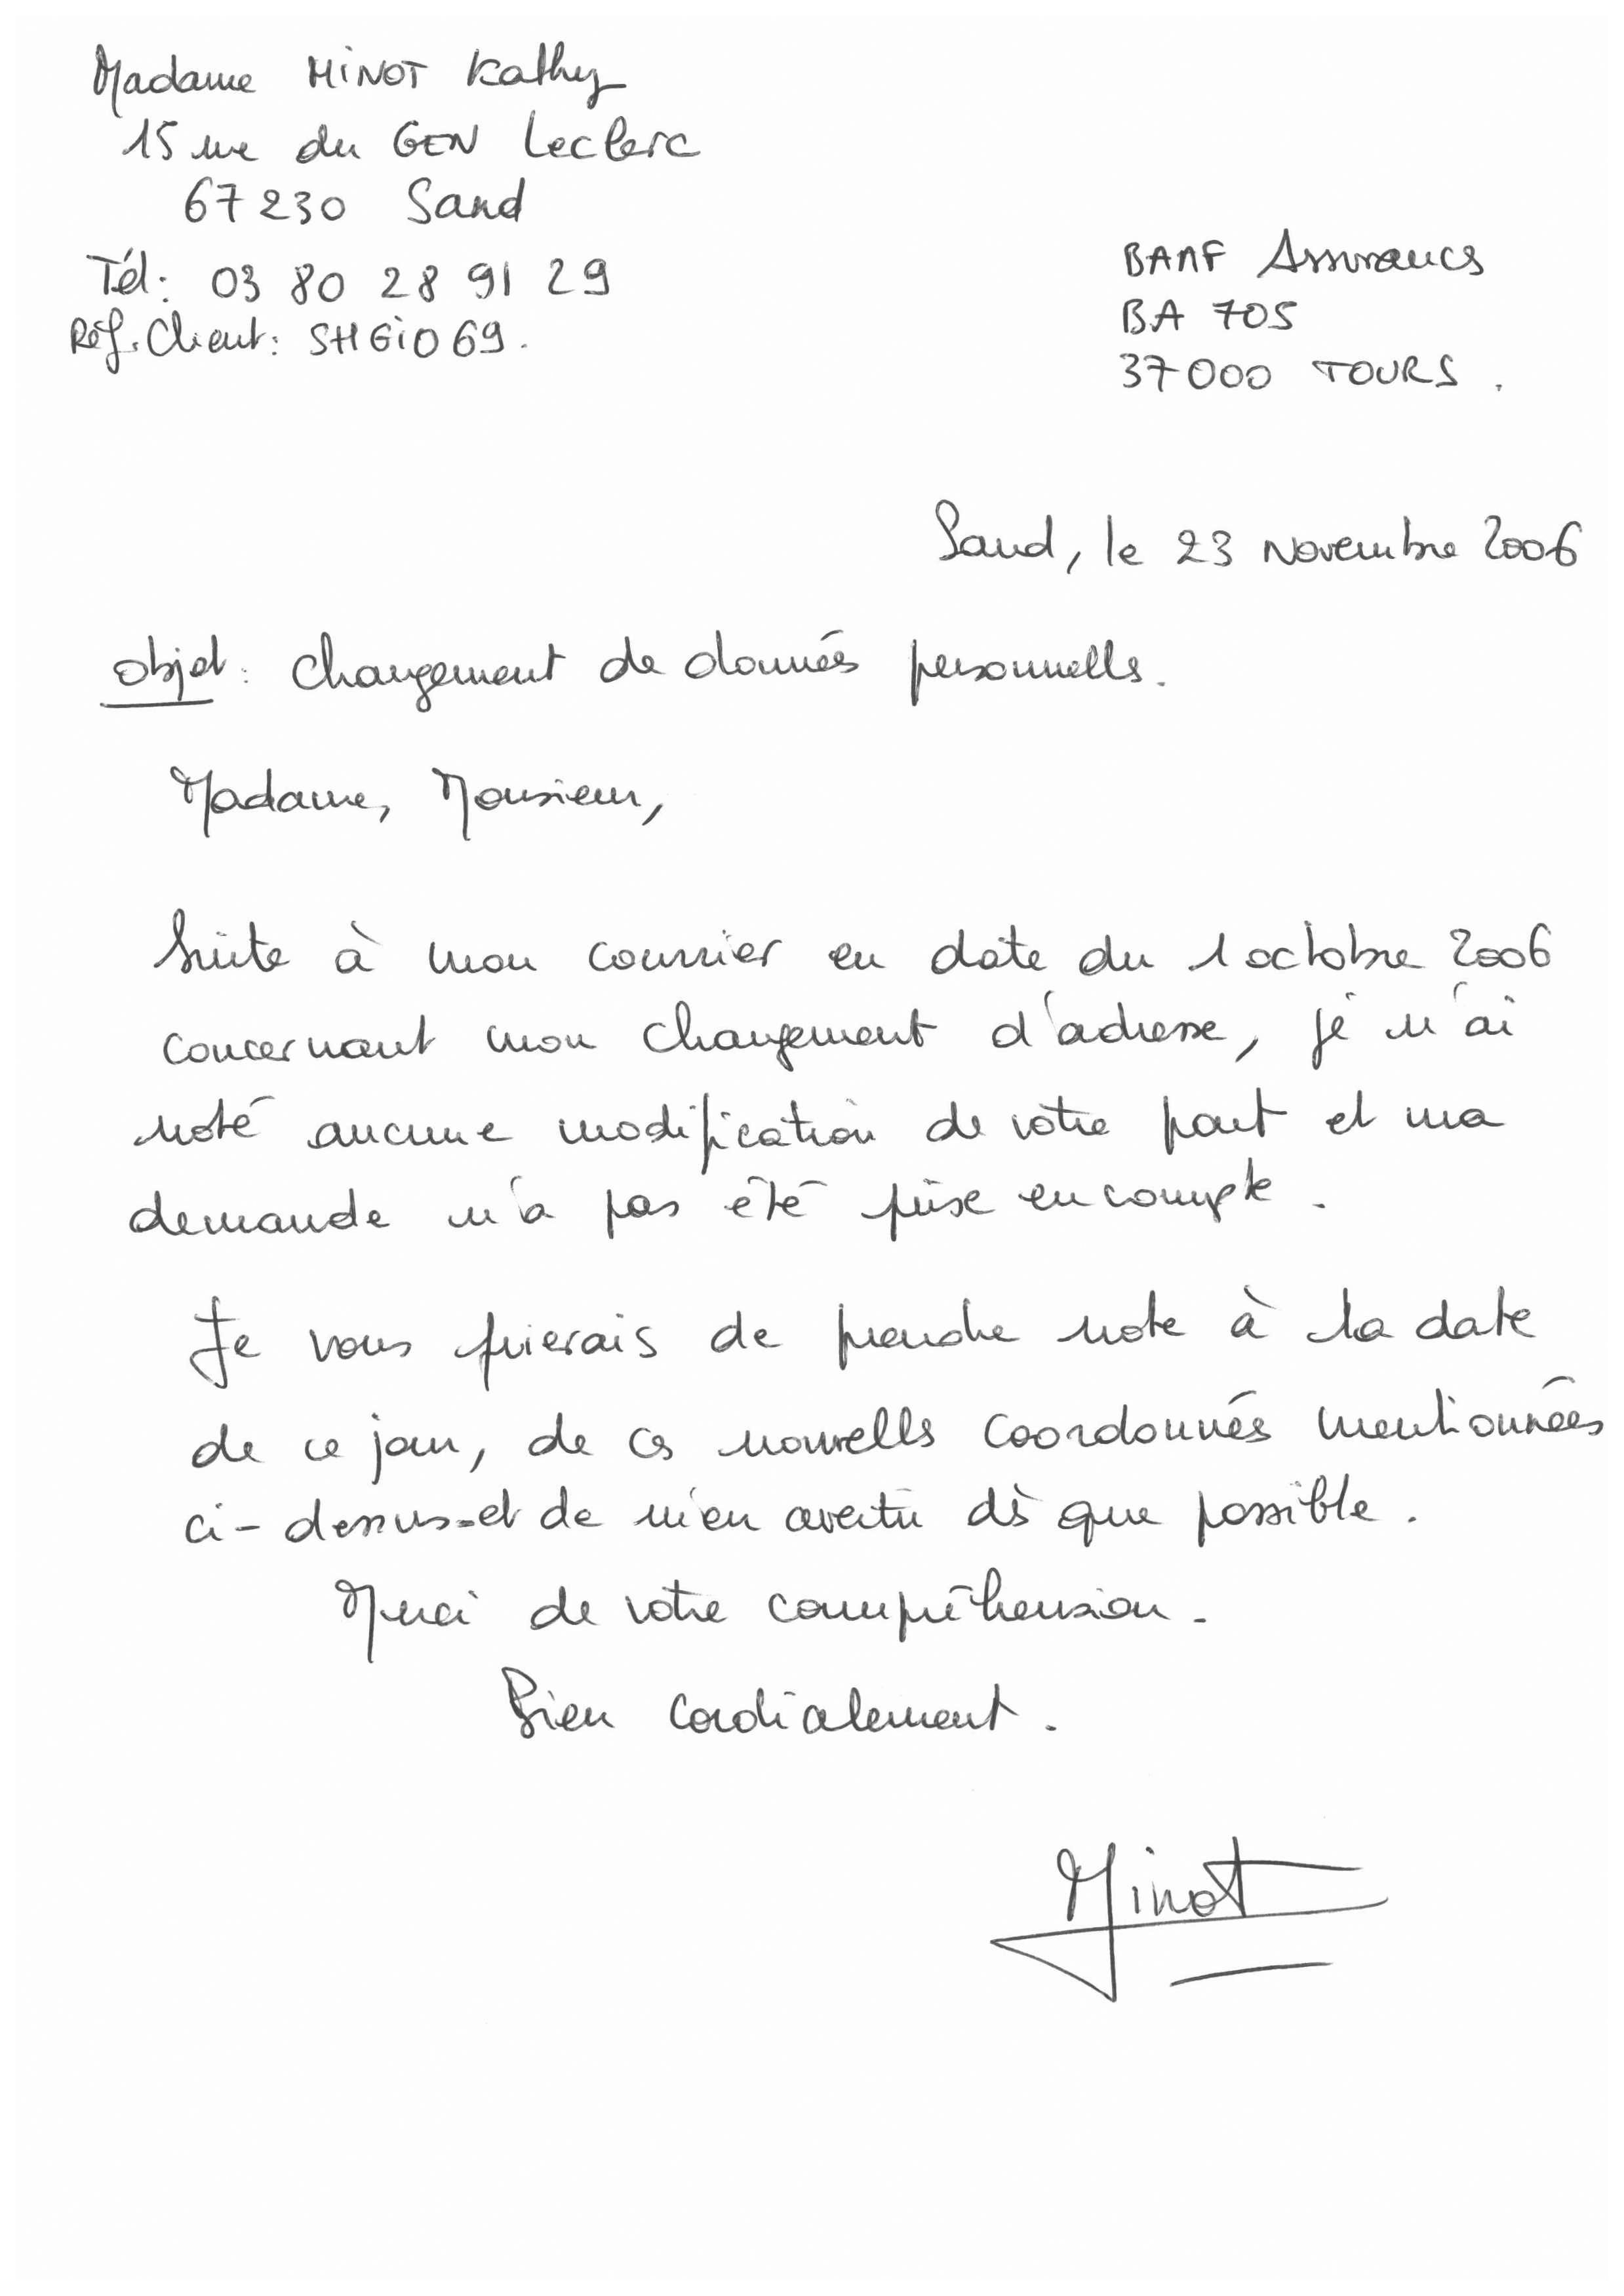 Madame MINOT Kathy
15 rue du GEN Leclerc
67230 Sand
Tél: 03 80 28 91 29
Réf. Client: SHGIO69.
BAAF Assurances
BA 705
37000 TOURS.
Sand, le 23 Novembre 2006
Objet: Changement de données personnelles.
Madame, Monsieur,
Suite à mon courrier en date du 1 octobre 2006
concernant mon changement d'adresse, je n'ai
noté aucune modification de votre part et ma
demande n'a pas été prise en compte.
Je vous prierais de prendre note à la date
de ce jour, de ces nouvelles coordonnées mentionnées
ci-dessus et de m'en avertir dès que possible.
Merci de votre compréhension.
Bien cordialement.
Minot